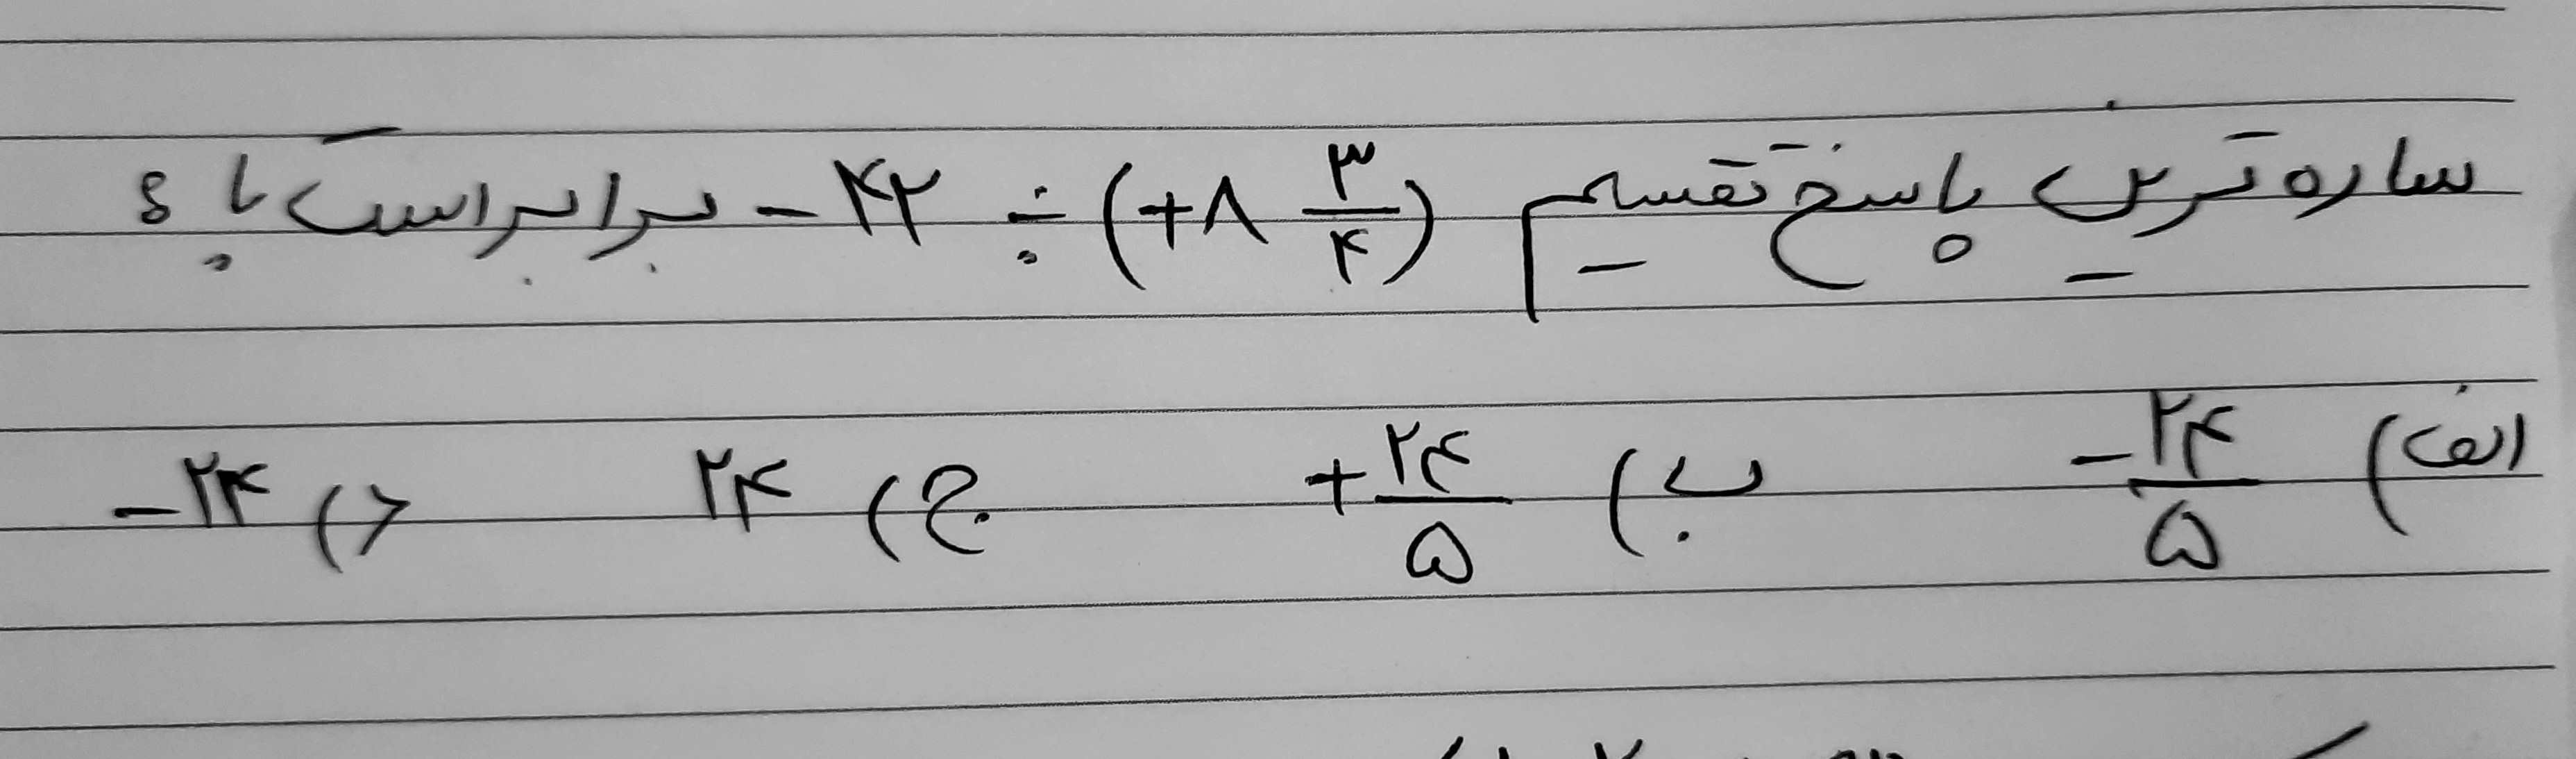 ساده ترین پاسخ تقسیم -۴۲ ÷ (+۸ ۳/۴) برابر است با ؟
الف) -۲۴/۵ ب) +۲۴/۵ ج) ۲۴ د) -۲۴